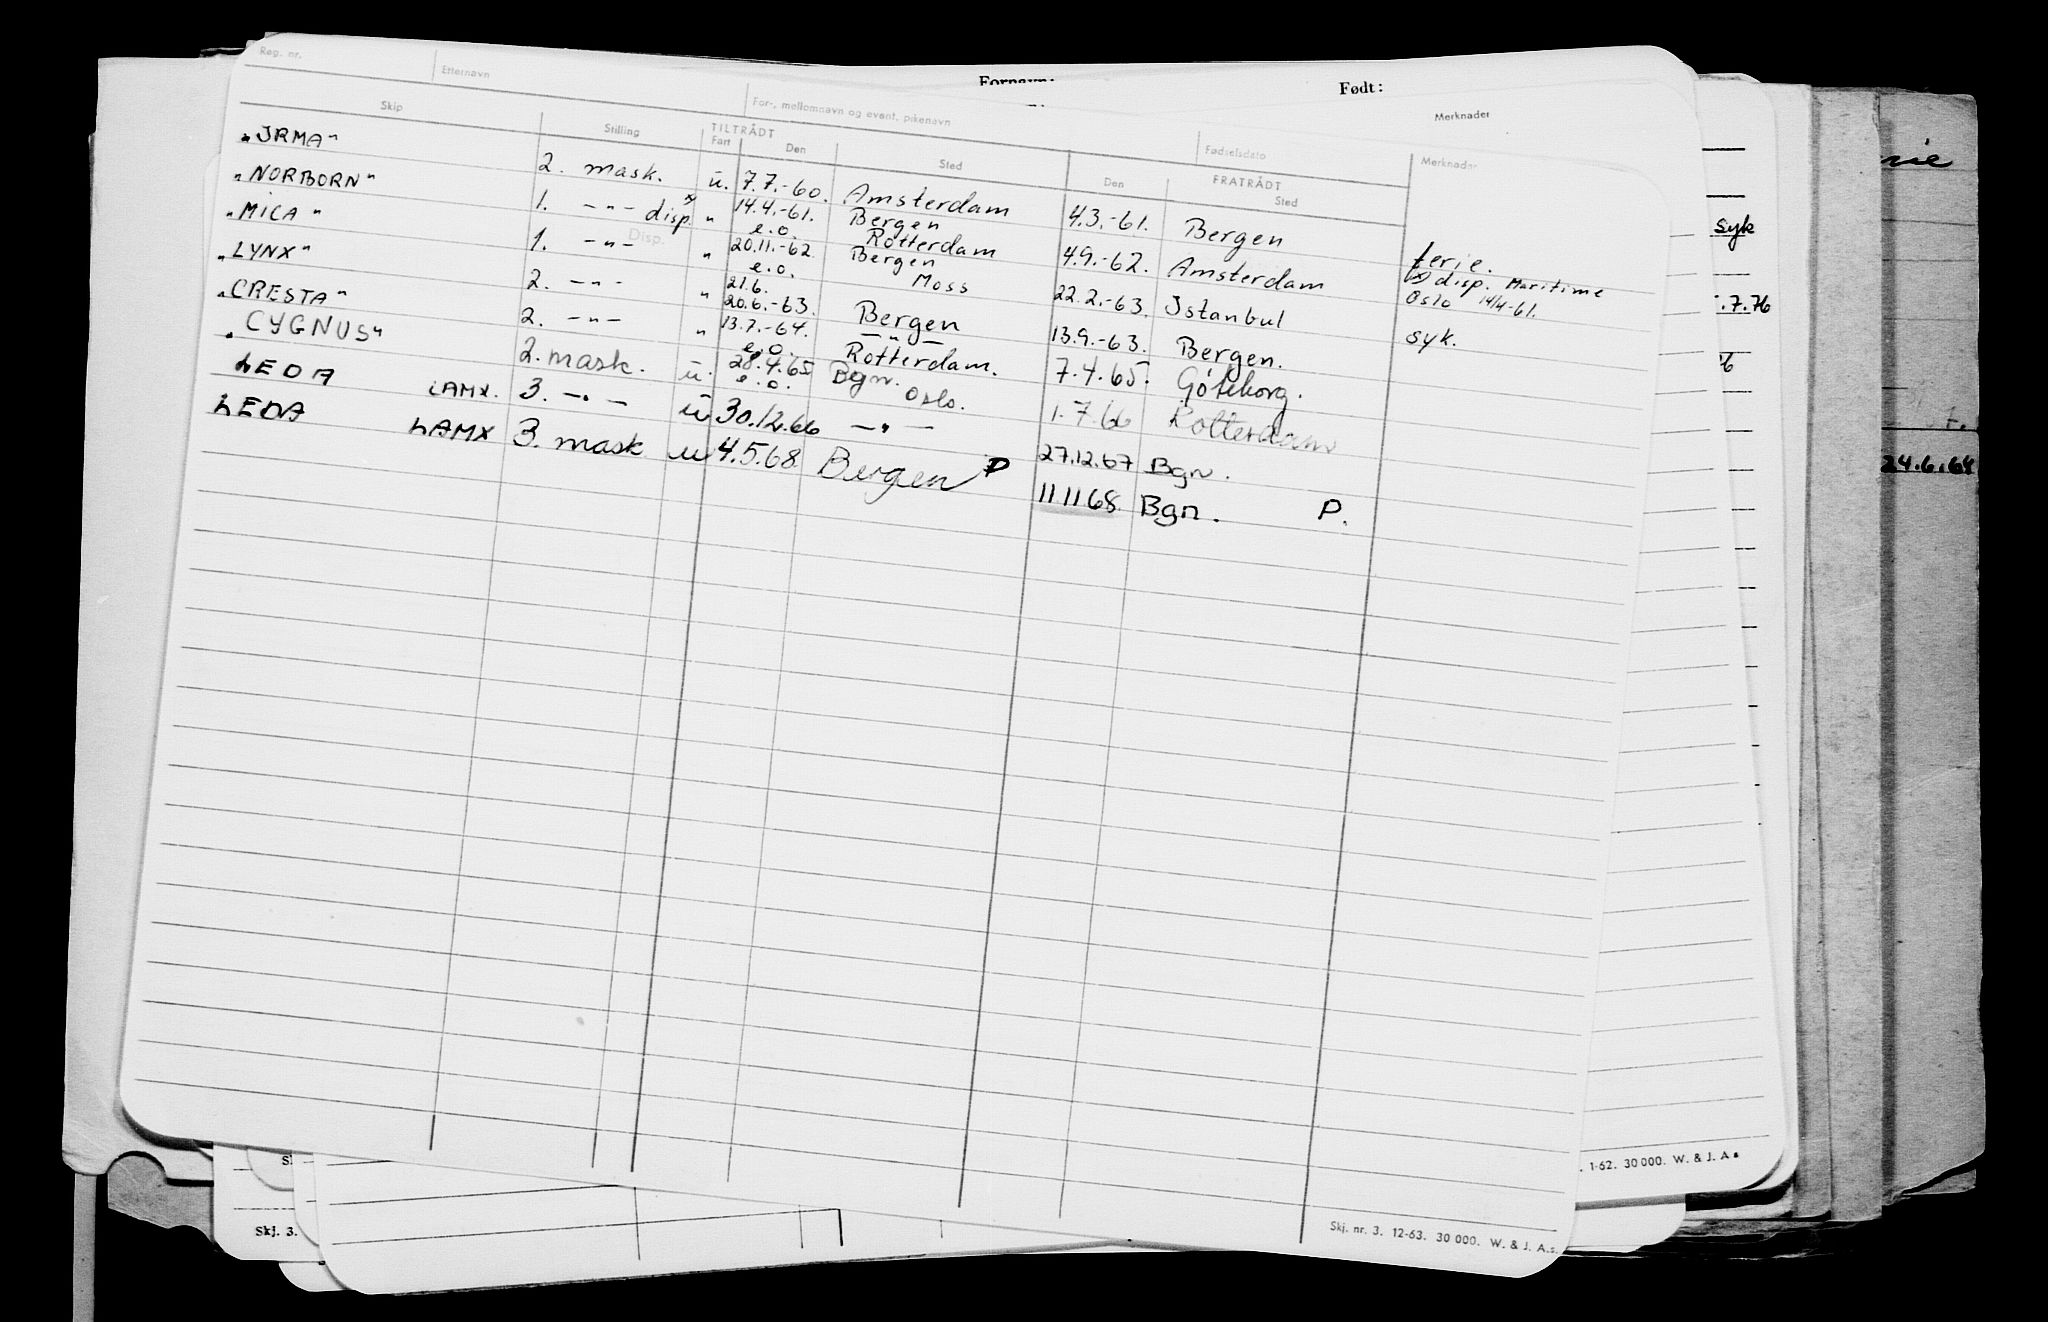 Reg. nr. Etternavn For-, mellomnavn og event. pikenavn Fødselsdato Merknader
Fornavn: Født:
Merknader
Skip Stilling TILTRÅDT FRATRÅDT
Fart Den Sted Den Sted
"IRMA" 2. mask. u. 7.7.-60. Amsterdam 4.3.-61. Bergen ferie.
"NORBORN" 1. -"- disp. x " 14.4.-61. Bergen 4.9.-62. Amsterdam x) disp. Maritime
e.o. Rotterdam Oslo 14/4-61.
"MICA" 1. -"- " 20.11.-62 Bergen 22.2.-63. Istanbul syk.
Disp.
e.o. Moss
"LYNX" 2. -"- " 21.6.
20.6.-63. Bergen 13.9.-63. Bergen.
"CRESTA" 2. -"- " 13.7.-64. -"- 7.4.65. Göteborg.
e.o. Rotterdam.
"CYGNUS" 2. mask. u. 28.4.65 Bgn. 1.7.66 Rotterdam
e.o. Oslo.
LEDA LAMX. 3. -"- u 30.12.66 -"- 27.12.67 Bgn.
LEDA LAMX 3. mask u 4.5.68 Bergen P 11 11 68 Bgn. P.
syk
.7.76
24.6.64
1-62. 30 000. W. & J. A.s
Skj. 3.
Skj. nr. 3. 12-63. 30 000. W. & J. A.s.